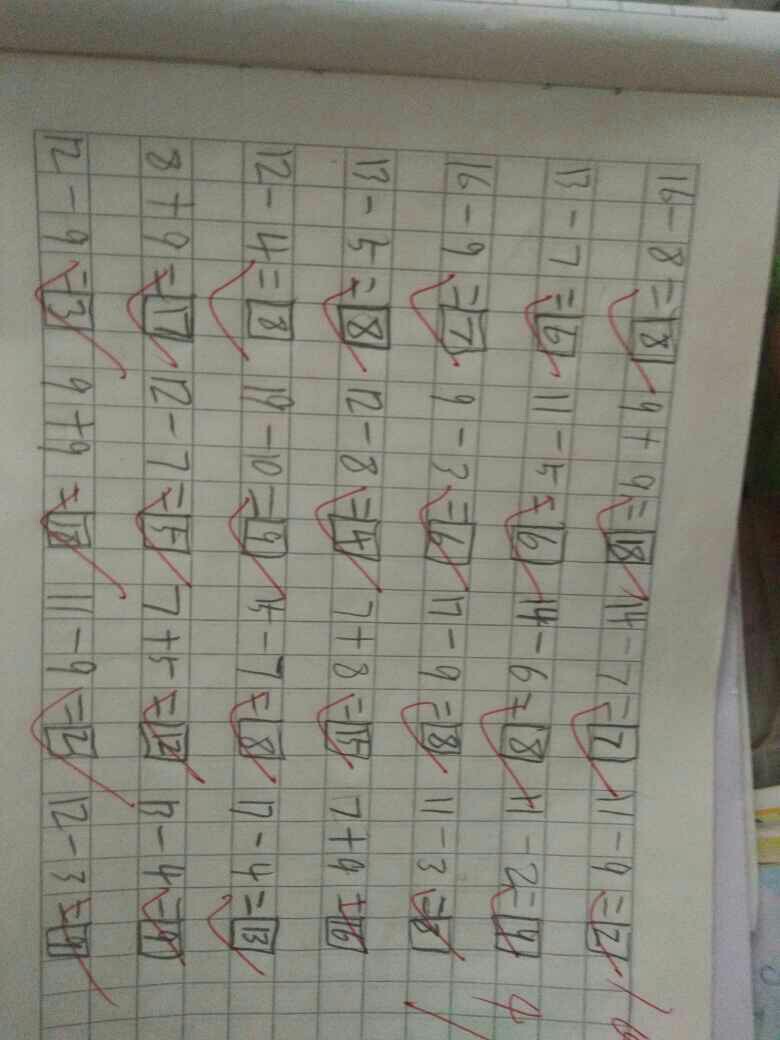 16-8=8 9+9=18 14-7=7 11-9=2
13-7=6 11-5=6 14-6=8 11-2=9
16-9=7 9-3=6 17-9=8 11-3=8
13-5=8 12-8=4 7+8=15 7+9=16
12-4=8 19-10=9 15-7=8 17-4=13
8+9=17 12-7=5 7+5=12 13-4=9
12-9=3 9+9=18 11-9=2 12-3=9